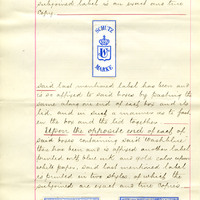 subjoined label is an exact and true
Copy.
SCHUTZ
MARKE
Said last mentioned label has been and
is so affixed to said boxes by pasting the
same along one end of each box and its
lid, and in such a manner as to fasten
the box and the lid together
Upon the opposite end of each of
said boxes containing said Washblue,
this has been and is affixed another label
printed with blue ink and gold color upon
white paper, said last mentioned label
is printed in two styles of which the
subjoined are exact and true Copies